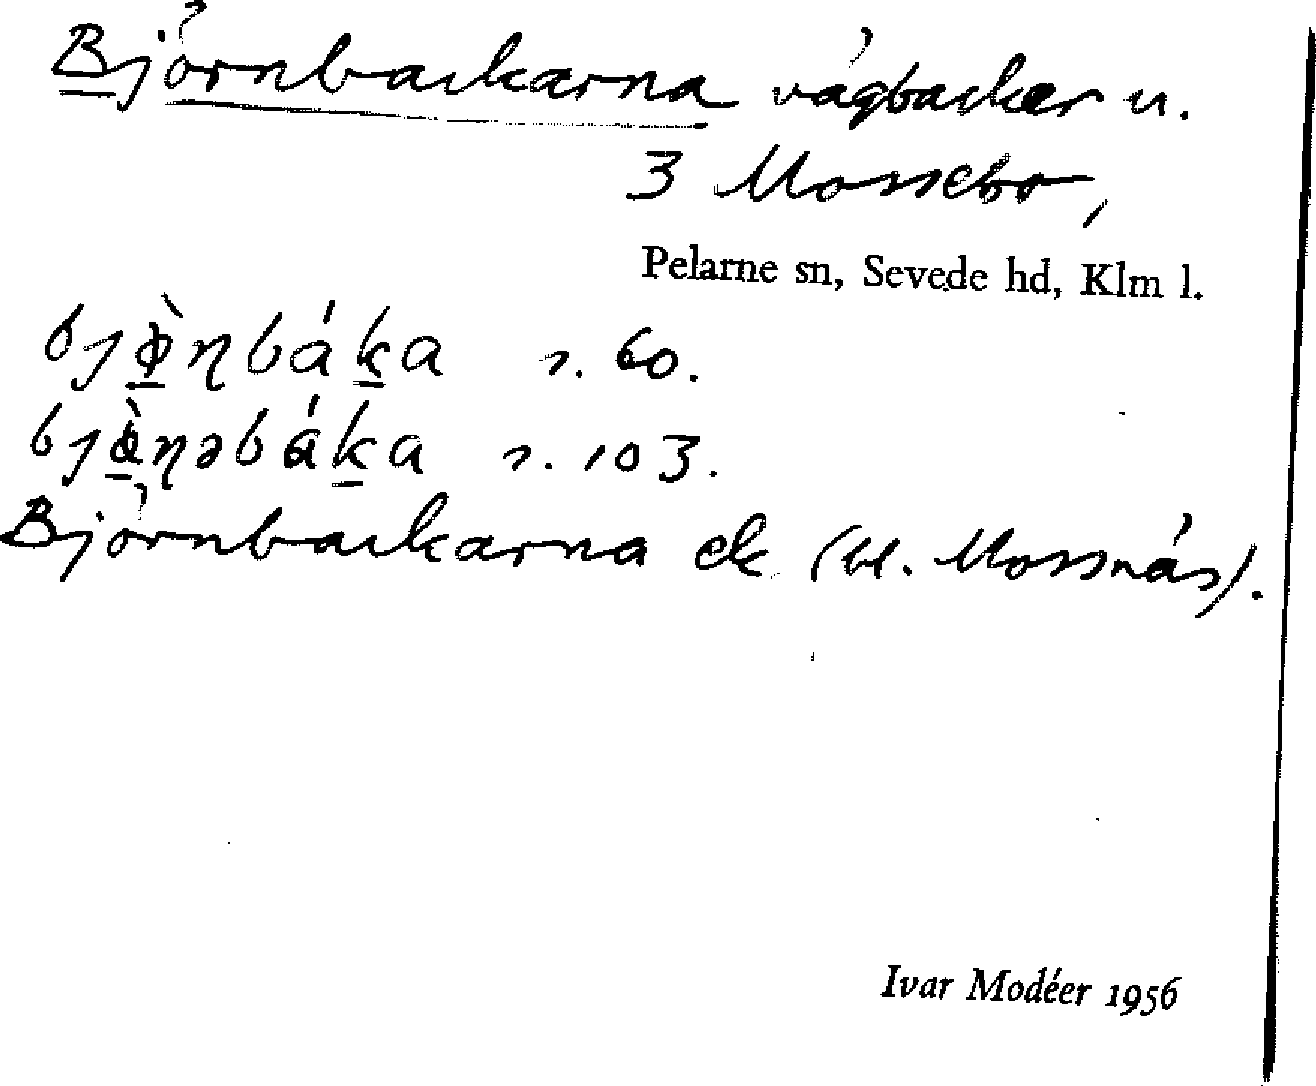 Björnbackarna vägbackar u.
3 Mossebo,
Pelarne sn, Sevede hd, Klm l.
bjø̀ɳbáka s. 60.
bjàɳəbáka s. 103.
Björnbackarna ek (bl. Mossnäs).
Ivar Modéer 1956